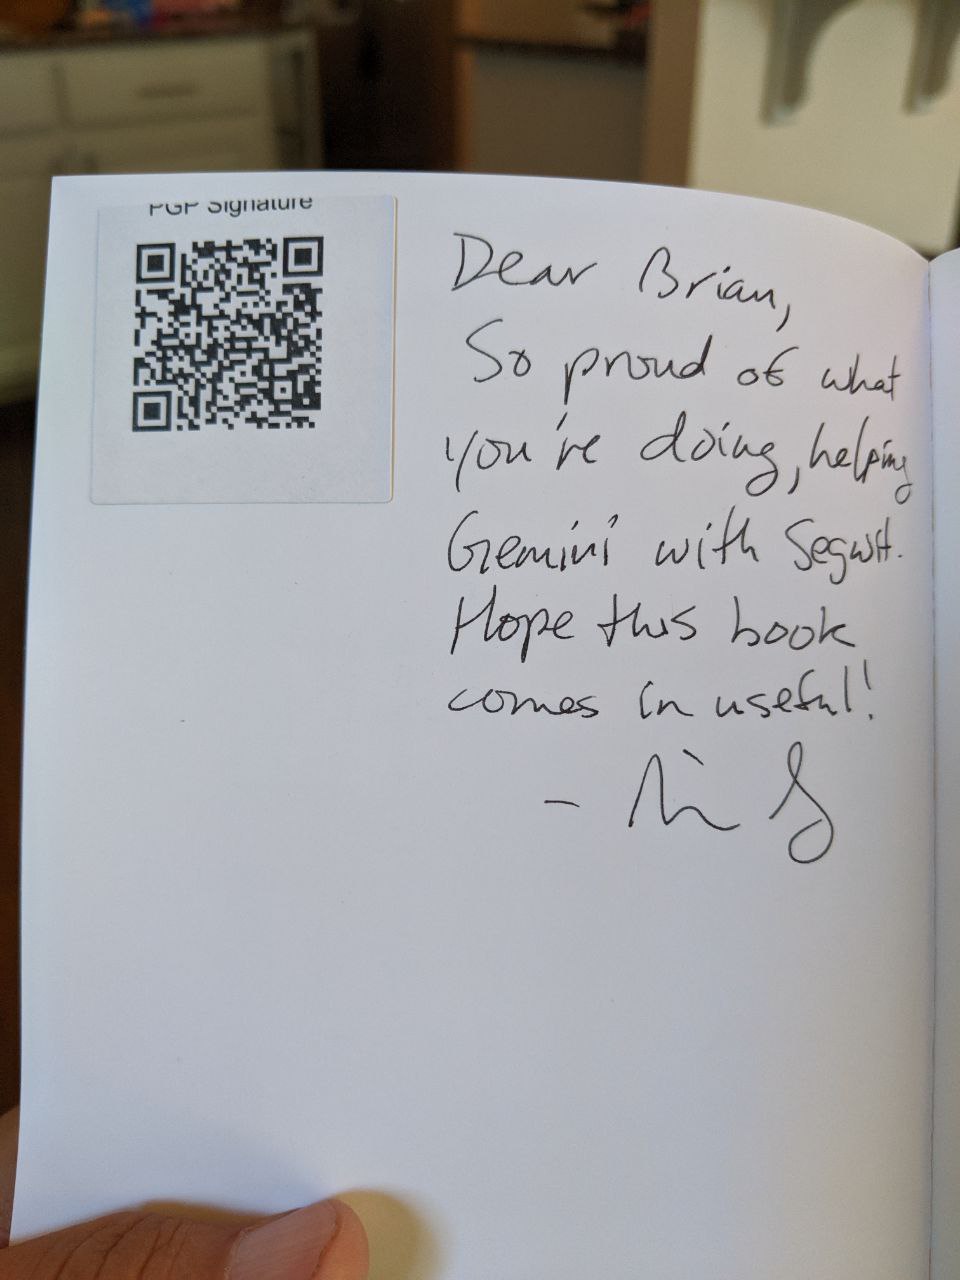 PGP Signature
Dear Brian,
So proud of what
you're doing, helping
Gemini with Segwit.
Hope this book
comes in useful!